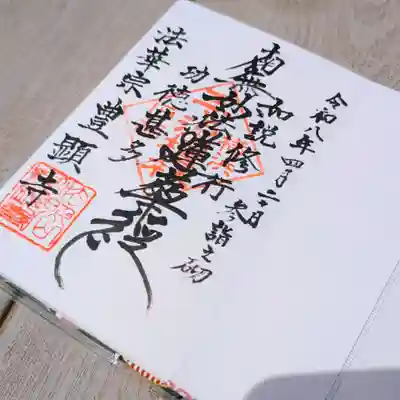 令和八年四月二十日
参詣之砌
如説修行
南無妙法蓮華経
功徳甚多
法華宗豊顕寺